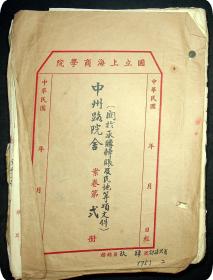 國立上海商學院
中華民國 年 月 日起
(關於承購轉賬及民地等項文件)
中州路院舍
案卷第 弍 冊
中華民國 年 月 日